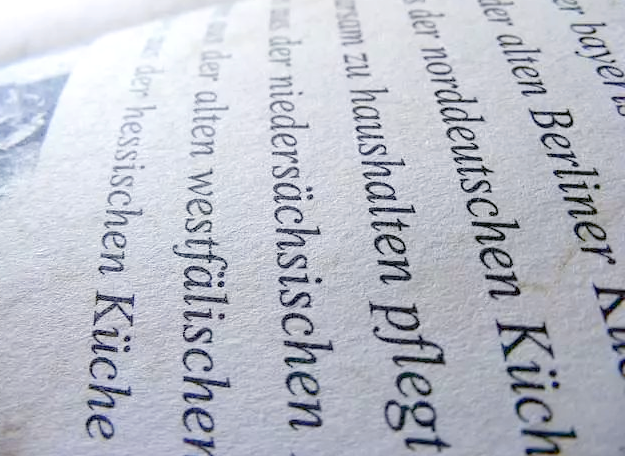 er bayeris
der alten Berliner Kü
s der norddeutschen Küch
arsam zu haushalten pflegt
aus der niedersächsischen
aus der alten westfälischen
aus der hessischen Küche